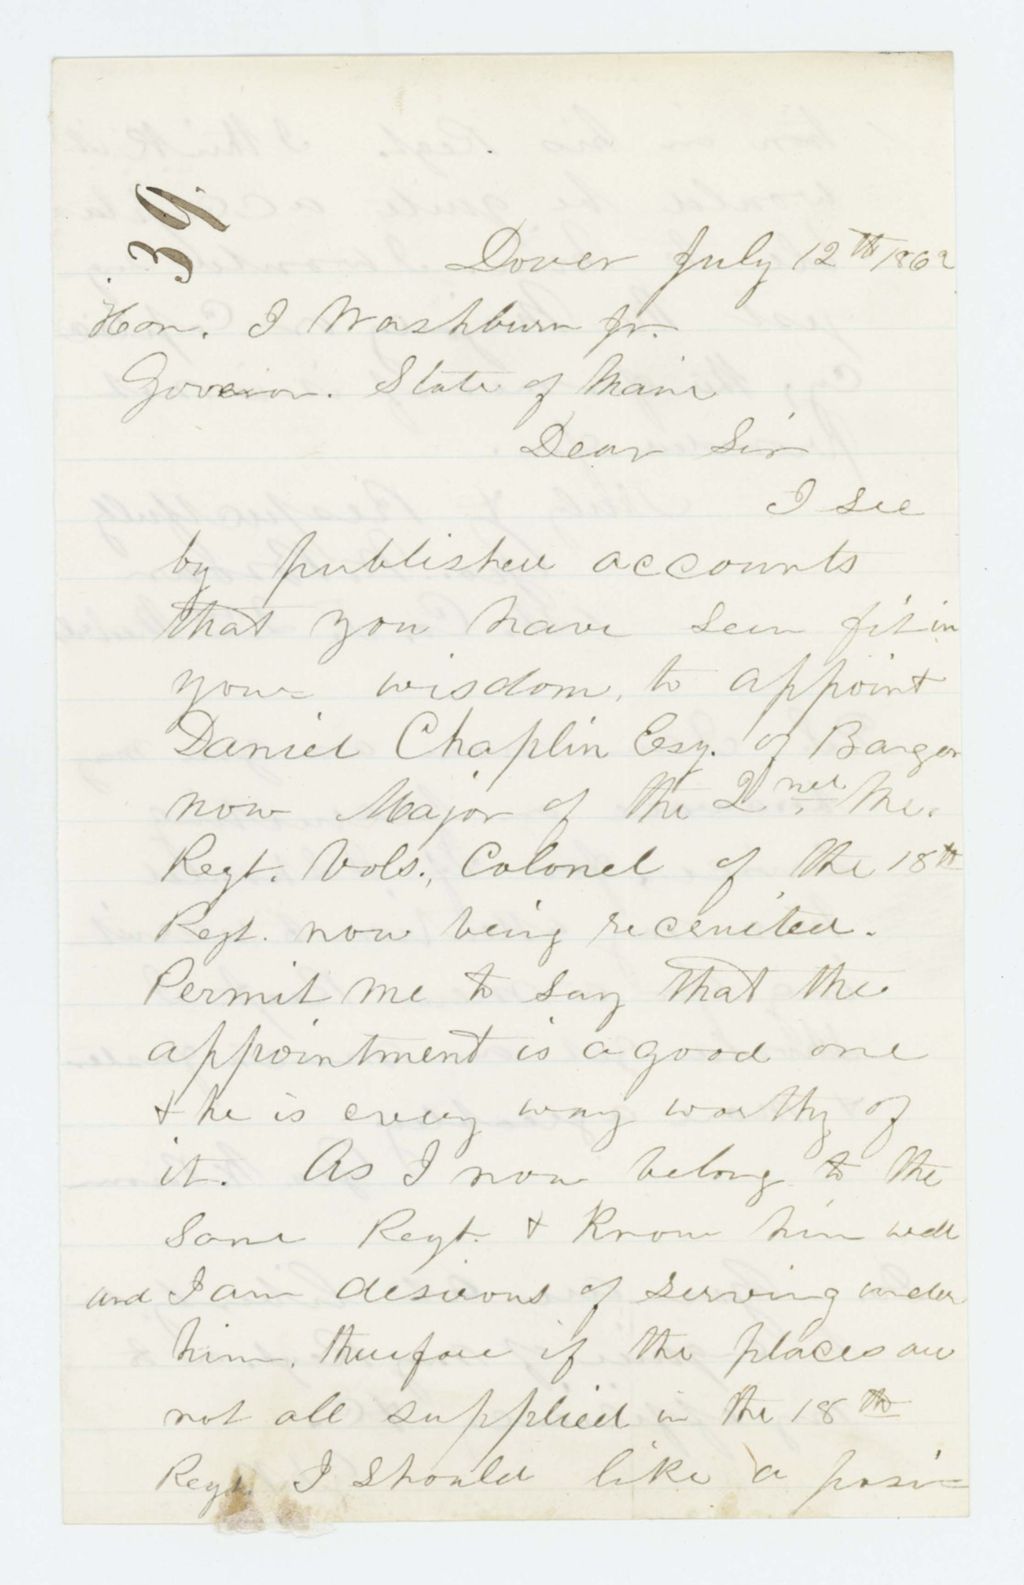 39
Dover July 12th 1862
Hon. I Washburn Jr.
Governor. State of Maine
Dear Sir
I see
by published accounts
that you have seen fit in
your wisdom, to appoint
Daniel Chaplin Esq. of Bangor
now Major of the 2nd. Me.
Regt. Vols., Colonel of the 18th
Regt. now being recruited.
Permit me to say that the
appointment is a good one
& he is every way worthy of
it. As I now belong to the
same Regt. & Know him well
and I am desirous of serving under
him, therefore if the places are
not all supplied in the 18th
Regt. I should like a posi=